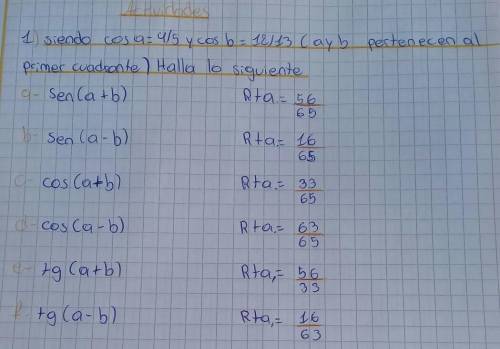 Actividades
1) siendo cos a = 4/5 y cos b = 12/13 (a y b pertenecen al
primer cuadrante) Halla lo siguiente
a- sen (a+b) Rta = 56/65
b- sen (a-b) Rta = 16/65
c- cos (a+b) Rta = 33/65
d- cos (a-b) Rta = 63/65
e- tg (a+b) Rta = 56/33
f- tg (a-b) Rta = 16/63